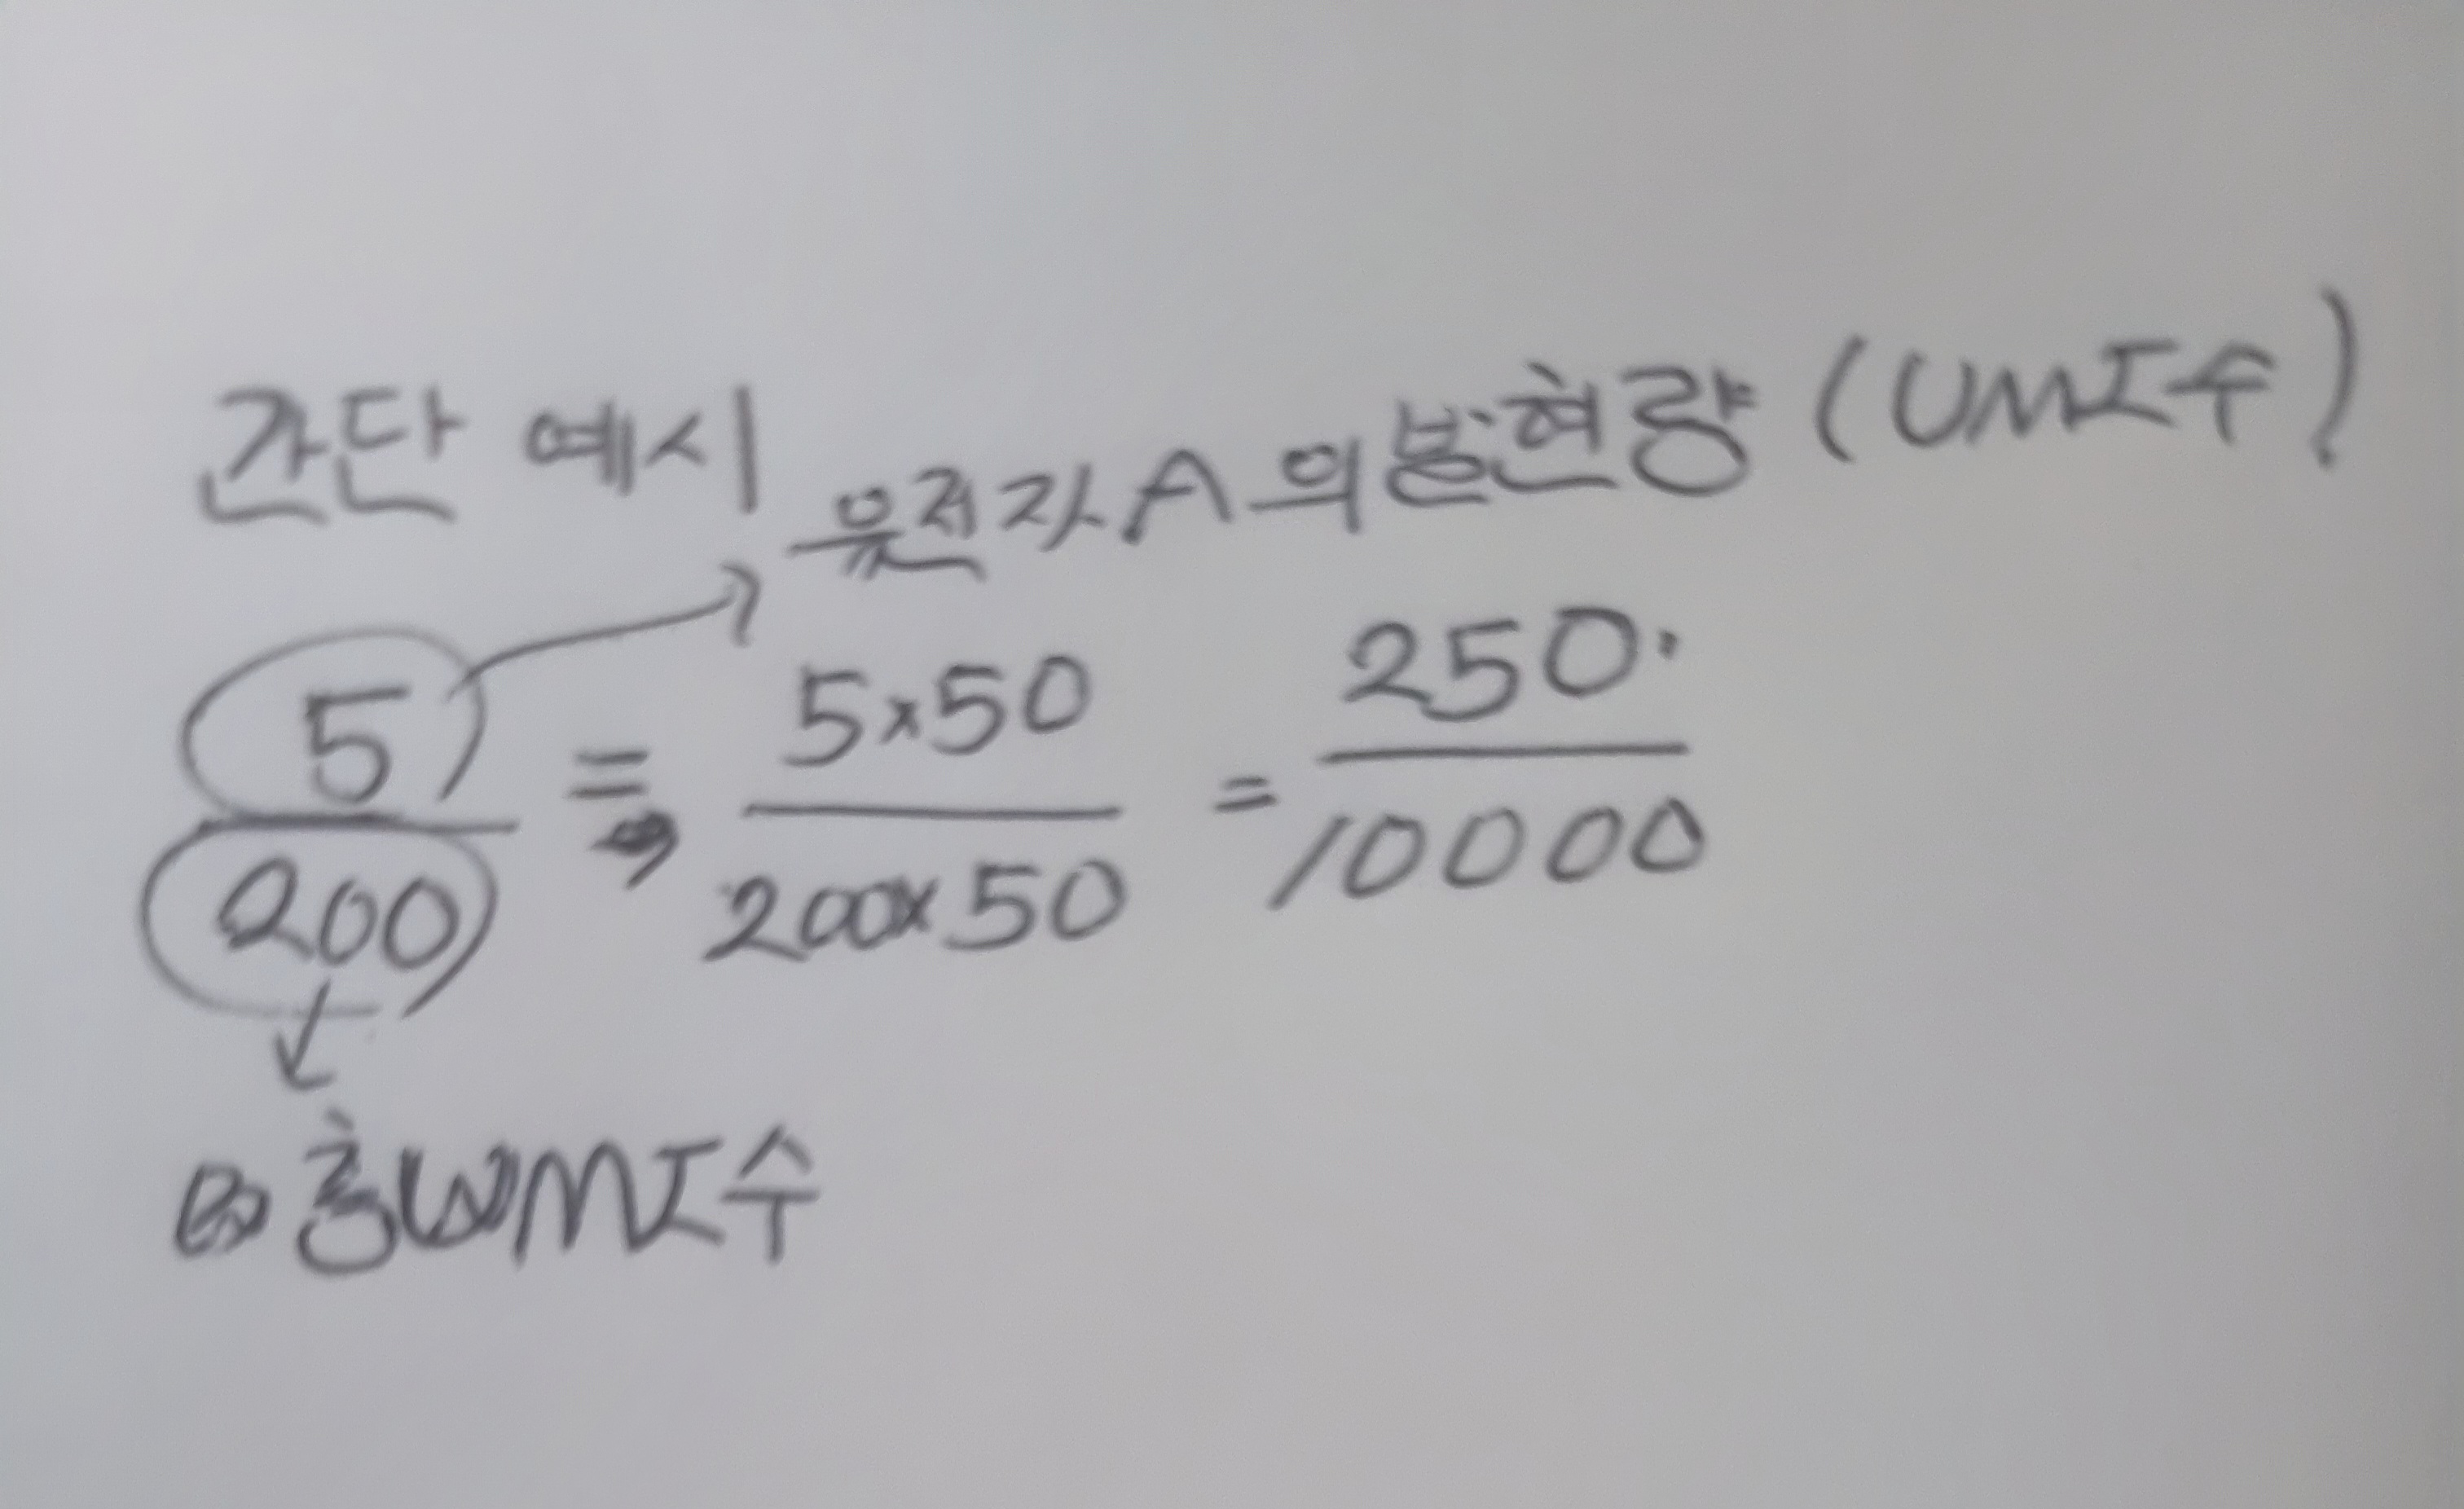 간단 예시
유전자 A의 발현량 (UMI수)
5/200 = 5×50/200×50 = 250/10000
총 UMI수